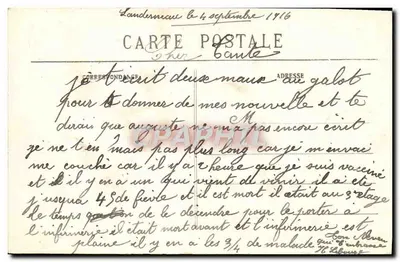 Landerneau le 4 septembre 1916
CARTE POSTALE
Cher Tante
CORRESPONDANCE ADRESSE
je t'ecrit deux maux au galot
pour donner de mes nouvelle et te
dirais que auguste ne m'a pas encore ecrit
je ne t'en mais pas plus long car je m'en vai
me couché car il y a 2 heure que je suis vacciné
et il y en a un qui vient de venir il a été
jusqua 4 S de fièvre et il est mort il était au 3e etage
le temps de le decendre pour le porter a
l'infirmerie il etait mort avant et l'infirmerie est
plaine il y en a les 3/4 de malade
ton Neveu
qui t'embrasse